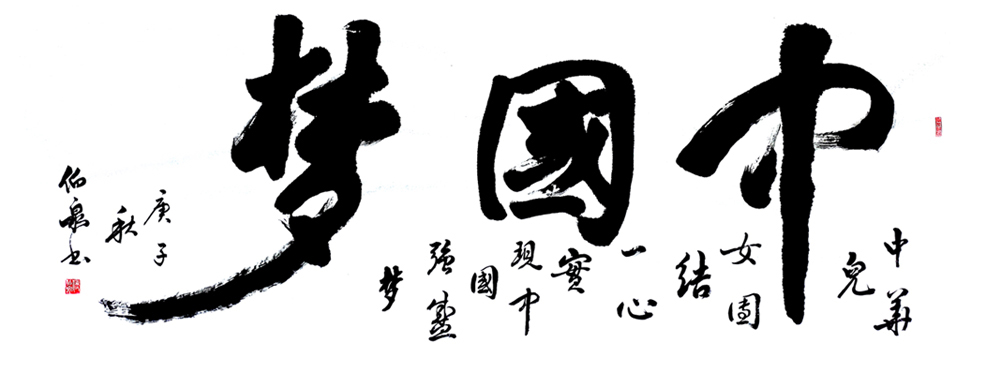 中國梦
中華兒女團結一心實現中國強盛梦
庚子秋
伯泉书